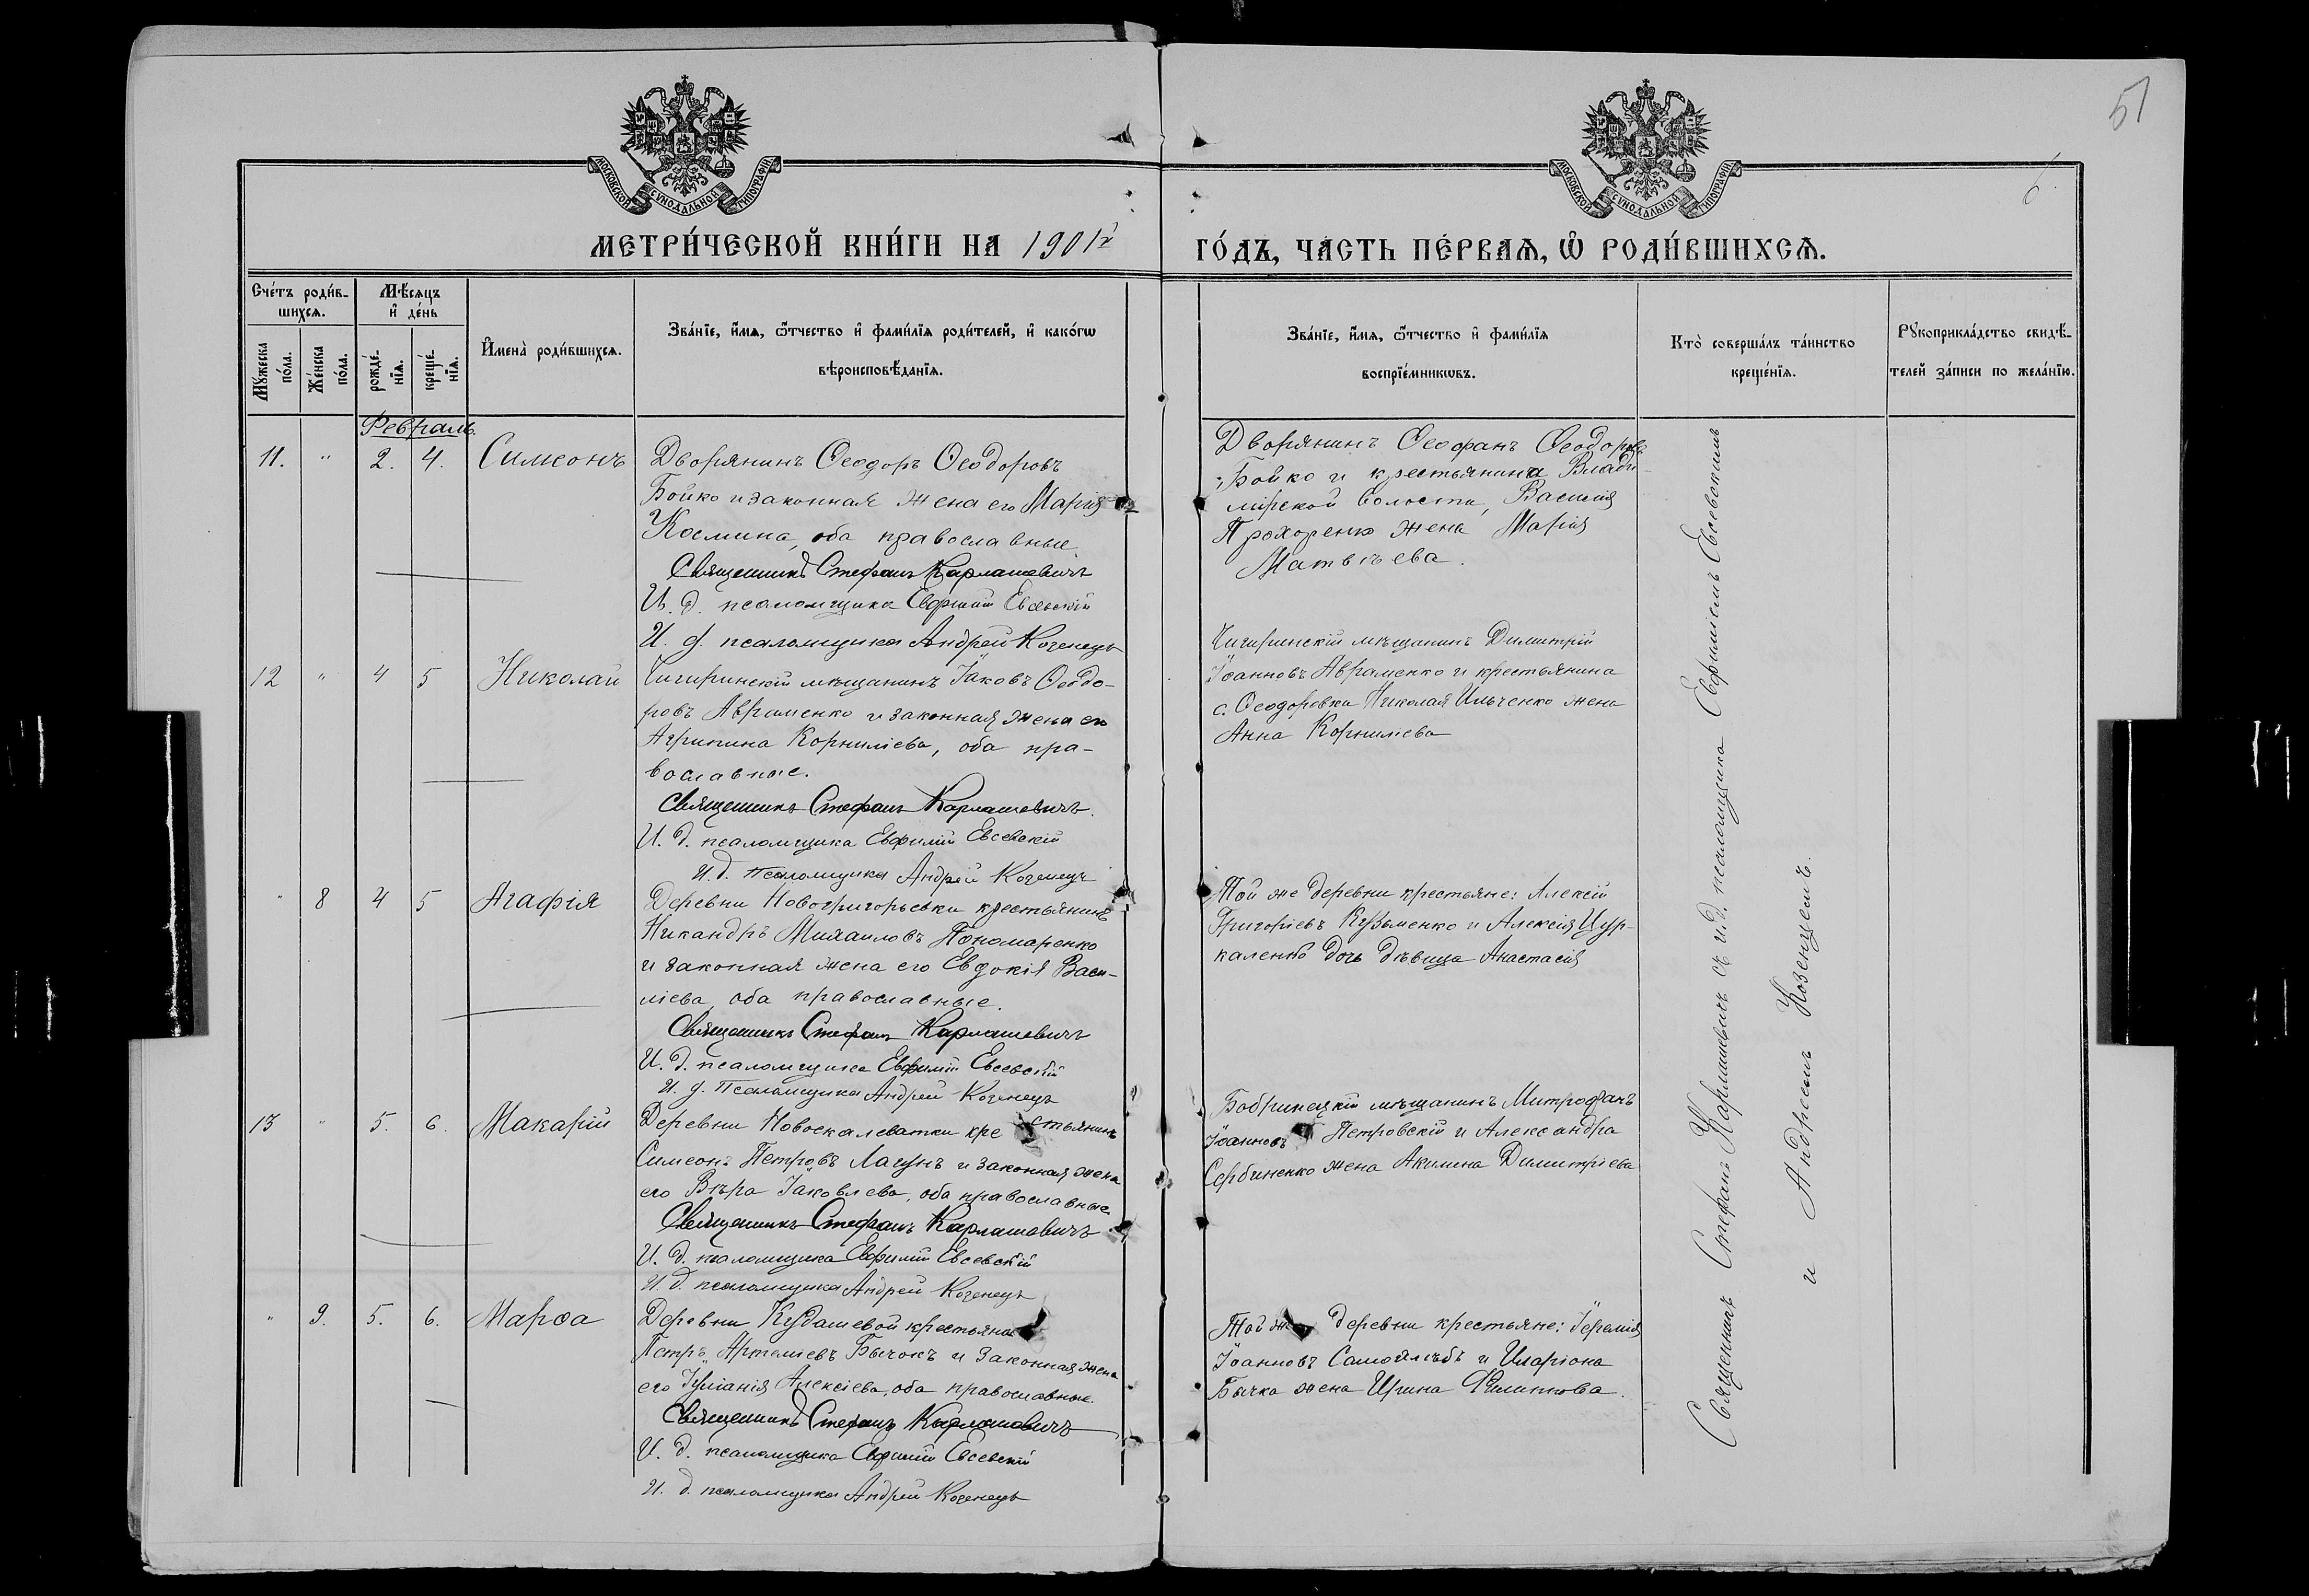 51
6.
МОСКОВСКОЙ СѴНОДАЛЬНОЙ ТИПОГРАФІИ
МОСКОВСКОЙ СѴНОДАЛЬНОЙ ТИПОГРАФІИ
МЕТРИ́ЧЕСКОЙ КНИ́ГИ НА 1901й
ГО́ДЪ, ЧА́СТЬ ПЕ́РВАѦ, Ѿ РОДИ́ВШИХСѦ.
Сче́тъ роди́в-
шихсѧ.
Мꙋ́жеска по́ла.
Же́нска по́ла.
Мѣ́сѧцъ и҆ де́нь
рожде́-
нїѧ.
креще́-
нїѧ.
И҆мена̀ роди́вшихсѧ.
Зва́нїе, и҆́мѧ, ѻ҆́тчество и҆ фами́лїѧ роди́телей, и҆ како́гѡ
вѣроисповѣ́данїѧ.
Зва́нїе, и҆́мѧ, ѻ҆́тчество и҆ фами́лїѧ
воспрїе́мникѡвъ.
Кто̀ соверша́лъ та́инство
креще́нїѧ.
Рꙋкоприкла́дство свидѣ́-
телей за́писи по жела́нїю.
Февраль.
11. " 2. 4. Симеонъ
Дворянинъ Ѳеодоръ Ѳеодоровъ
Бойко и законная жена его Марія
Космина, оба православные.
Священникъ Стефанъ Карлашевичъ
И. д. псаломщика Евфимій Евсевскій
И. д. псаломщика Андрей Козенецъ
Дворянинъ Ѳеофанъ Ѳеодоровъ
Бойко и крестьянина Влади-
мірской волости, Василія
Прохоренко жена Марія
Матвѣева.
12 " 4 5 Николай
Чигиринскій мѣщанинъ Іаковъ Ѳеодо-
ровъ Авраменко и законная жена его
Агрипина Корниліева, оба пра-
вославные.
Священникъ Стефанъ Карлашевичъ.
И. д. псаломщика Евфимій Евсевскій
И. д. псаломщика Андрей Козенецъ
Чигиринскій мѣщанинъ Димитрій
Іоанновъ Авраменко и крестьянина
с. Ѳеодоровки Николая Ильченко жена
Анна Корниліева
" 8 4 5 Агафія
Деревни Новогригорьевки крестьянинъ
Никандръ Михаиловъ Пономаренко
и законная жена его Евдокія Васи-
ліева, оба православные.
Священникъ Стефанъ Карлашевичъ
И. д. псаломщика Евфимій Евсевскій
И. д. псаломщика Андрей Козенецъ
Той же деревни крестьяне: Алексій
Григоріевъ Кузьменко и Алексія Цур-
каленко дочь дѣвица Анастасія
13 " 5. 6. Макарій
Деревни Новоскалеватки крестьянинъ
Симеонъ Петровъ Лагунъ и законная жена
его Вѣра Іаковлева, оба православные.
Священникъ Стефанъ Карлашевичъ
И. д. псаломщика Евфимій Евсевскій
И. д. псаломщика Андрей Козенецъ
Бобринецкій мѣщанинъ Митрофанъ
Іоанновъ Петровскій и Александра
Сербиненко жена Акилина Димитріева
" 9. 5. 6. Марѳа
Деревни Кудашевой крестьянинъ
Петръ Артеміевъ Бычокъ и законная жена
его Іуліанія Алексіева, оба православные.
Священникъ Стефанъ Карлашевичъ
И. д. псаломщика Евфимій Евсевскій
И. д. псаломщика Андрей Козенецъ
Той же деревни крестьяне: Іеремія
Іоанновъ Самойлѣбъ и Иларіона
Бычка жена Ирина Филиппова.
Священникъ Стефанъ Карлашевичъ съ и. д. псаломщика Евфиміемъ Евсевскимъ
и Андреемъ Козенцемъ.